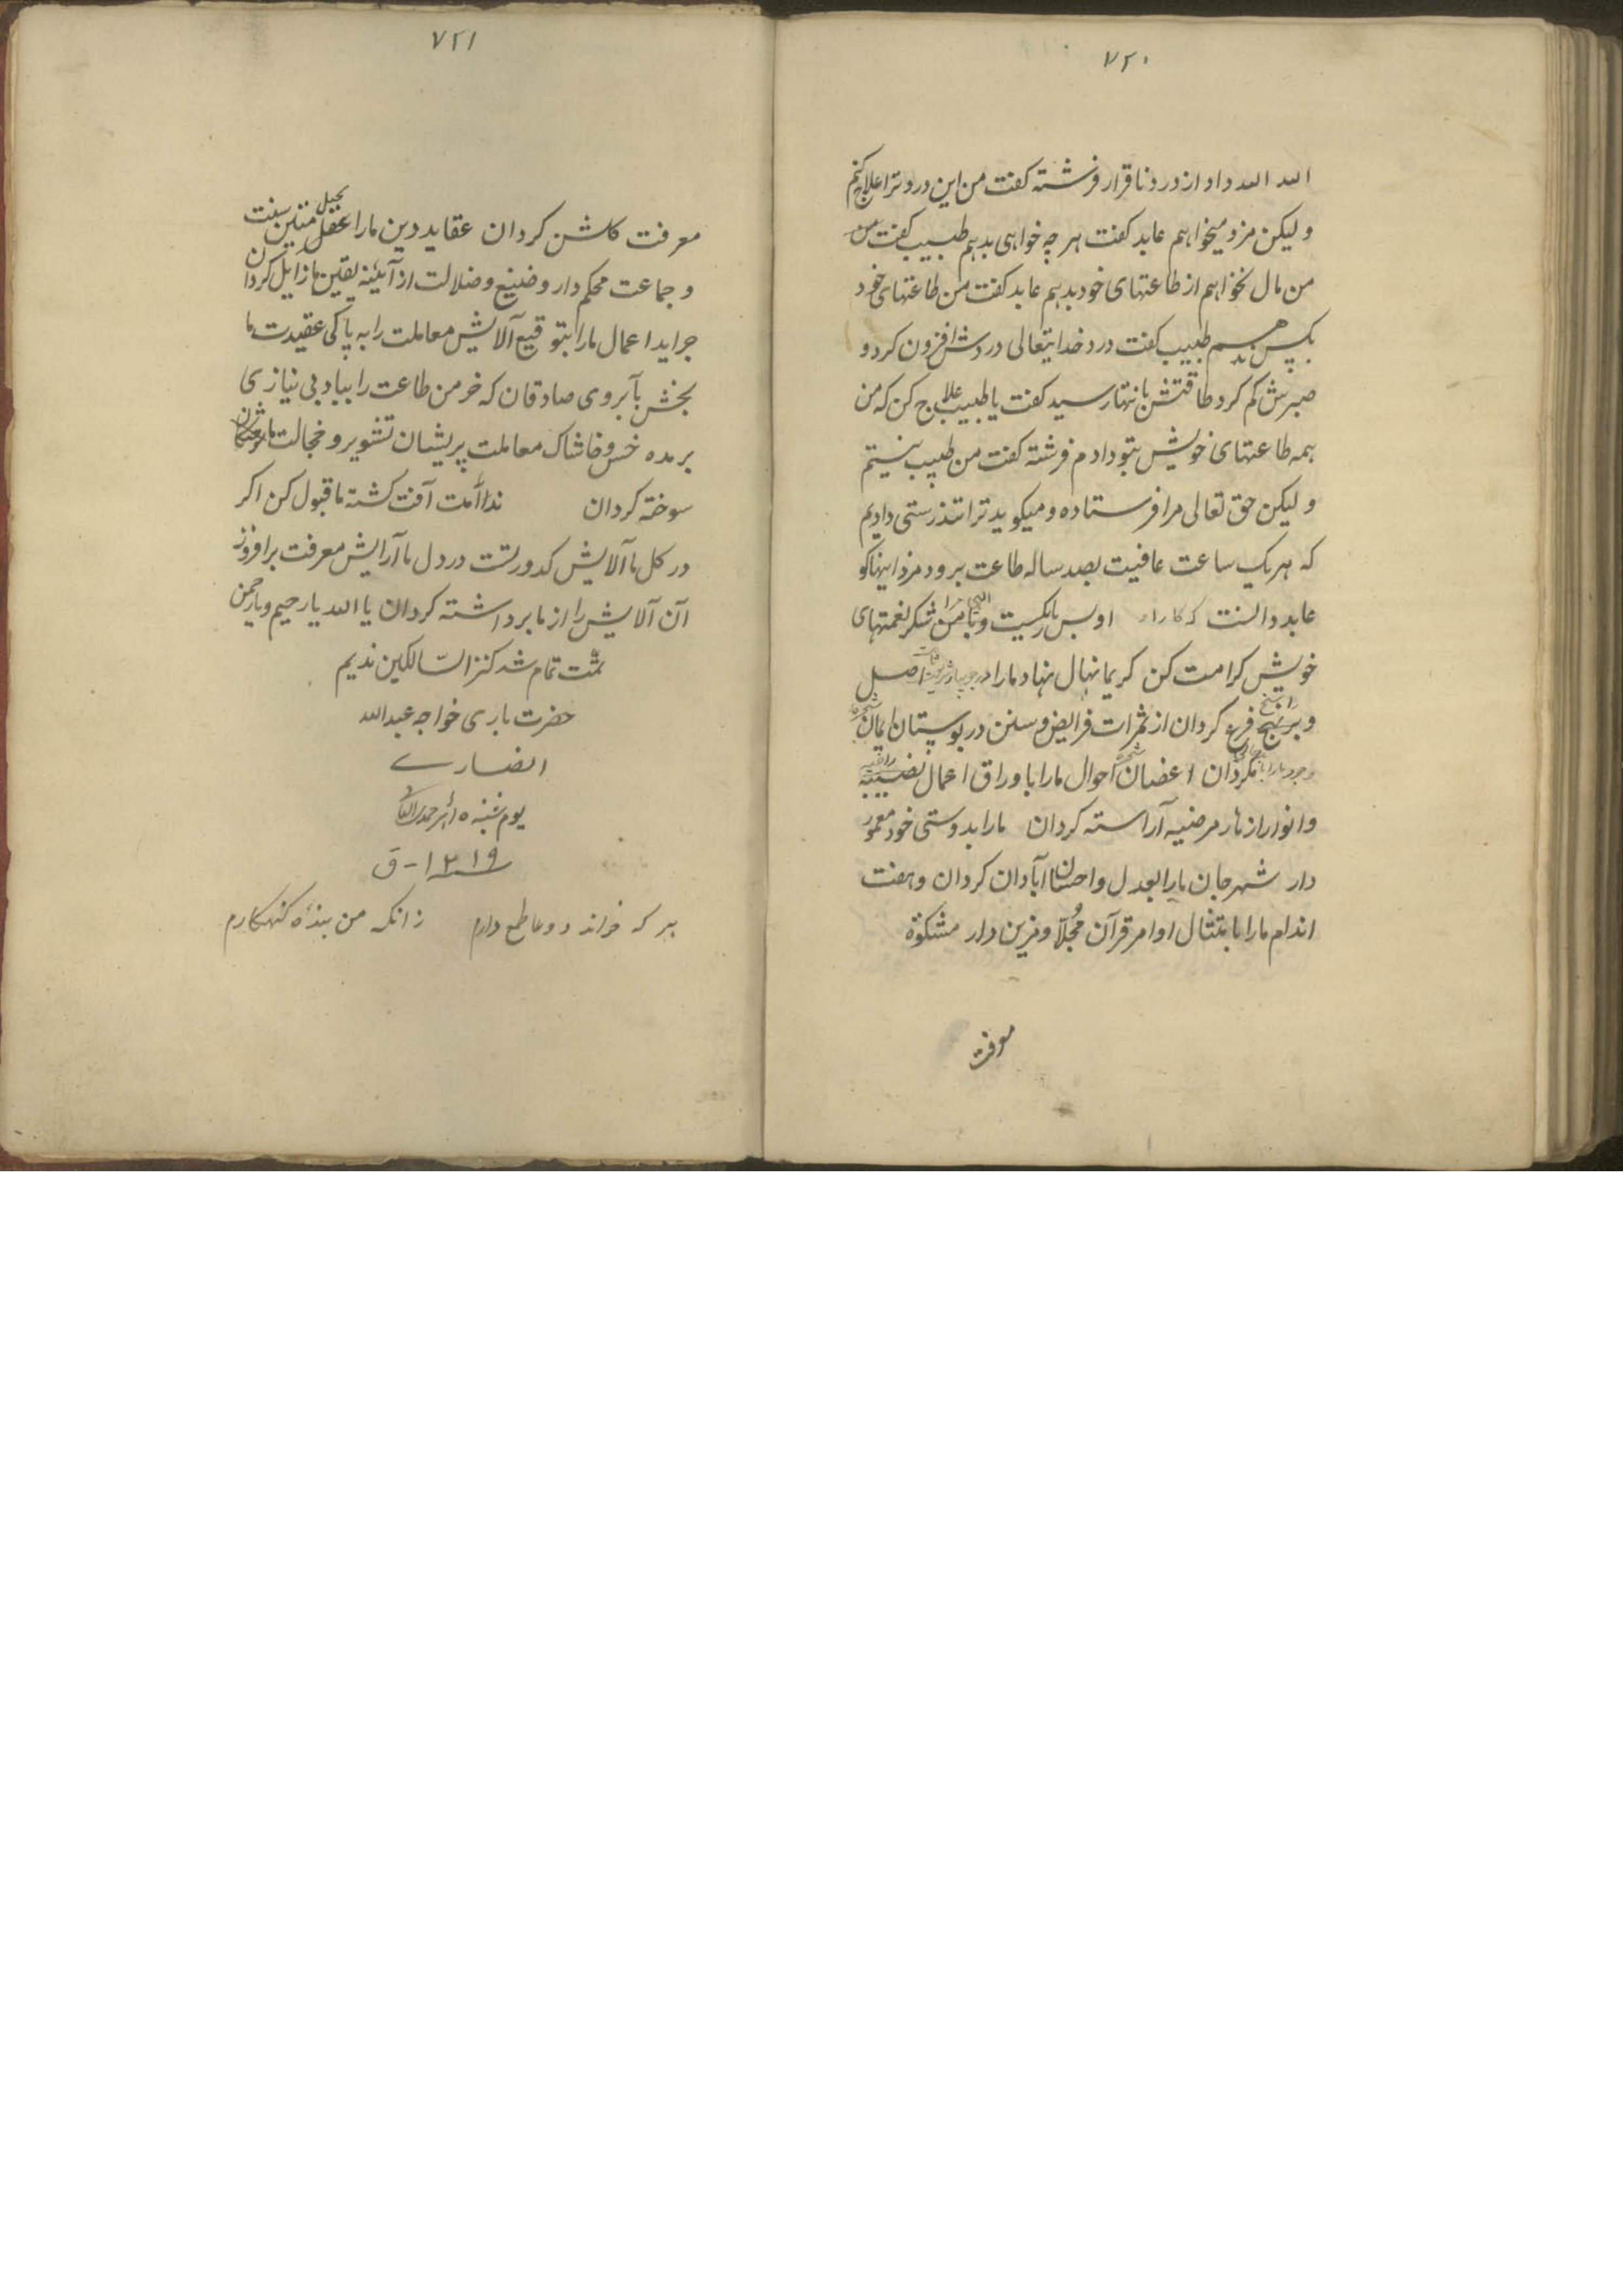 ٧٢٠
الله الله داد از درد ناقرار فرشته کفت من این درد ترا علاج کنم
و لیکن مزد میخواهم عابد کفت هر چه خواهی بدهم طبیب کفت من
من مال نخواهم از طاعتهای خود بدهم عابد کفت من طاعتهای خود
بکس ندهم طبیب کفت درد خدایتعالی دردش افزون کرد و
صبرش کم کرد طاقتش بانتها رسید کفت یا طبیب علاج کن که من
همه طاعتهای خویش بتو دادم فرشته کفت من طبیب نیستم
و لیکن حق تعالی مرا فرستاده و میکوید ترا تندرستی دادیم
که هر یک ساعت عافیت بصد ساله طاعت برود مزد اینها کو
عابد دانست که کار او بس الهی مرا شکر نعمتهای
خویش کرامت کن کریما نهال نهاد ما را در اصل
راسخ و بر نهج فرع کردان از ثمرات فرایض و سنن در بوستان ایمان
کردان اغصان شجره احوال ما را با وراق اعمال
و انوار ازهار مرضیه آراسته کردان ما را بدوستی خود معمور
دار شهر جان ما را بعدل و احسان آبادان کردان و هفت
اندام ما را بامتثال اوامر قرآن مُجلّا و مزین دار مشکوة
معرفت
٧٢١
معرفت کاشن کردان عقاید دین ما را بحبل عقل متین سنت
و جماعت محکم دار و ضنیع و ضلالت از آیینه یقین ما زایل کردان
جراید اعمال ما را بتوقیع آلایش معاملت را به پاکی عقیدت ما
بخش بآبروی صادقان که خرمن طاعت را بباد بی نیازی
بر مده خس و خاشاک معاملت پریشان تشویر و خجالت ما
سوخته کردان ندامت آفت کشته ما قبول کن اکر
در کل ما آلایش کدورتست در دل ما آرایش معرفت برافروز
آن آلایش را از ما برداشته کردان یا الله یا رحیم و یا رحمن
تمّت تمام شد کنز السّالکین ندیم
حضرت باری خواجه عبدالله
انصاری
یوم شنبه ١٥
سنه ١٣١٩-ق
هر که خواند دوعا طمع دارم زانکه من بنده کنهکارم